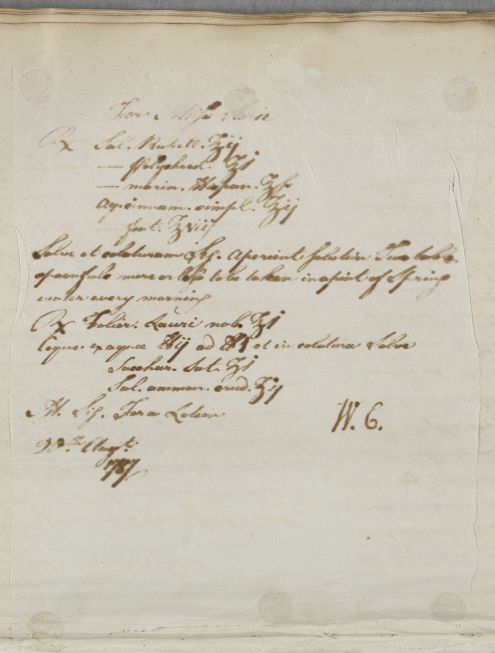 For Miss
Rx Sal. Rupell. ʒij
— Polychrest. ʒj
— marin. Hispan. ʒſs
aq. cinnam. simpl. ʒij
— font. ʒvij
Solve et colaturam Sig. Aperient Solution Two table
spoonfuls more or less to be taken in a pint of Spring
water every morning
Rx Folior. Lauri nob. ʒj
Coque ex aquae ℔ij ad ℔j et in colatura Solve
Sacchar. Sat. ʒj
Sal. ammon. crud. ʒij
M. Sig. For a Lotion
W. C.
23d. Augt.
1787